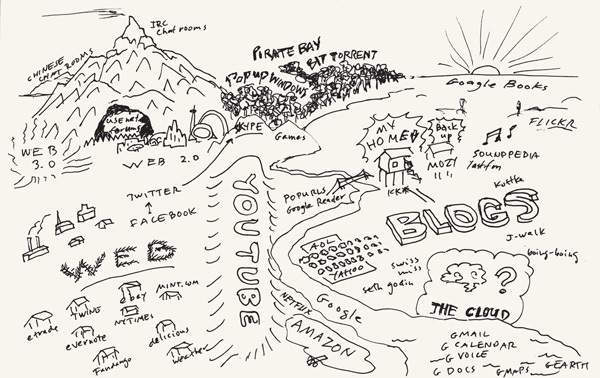 IRC
Chat rooms
CHINESE
CHAT ROOMS
PIRATE BAY
BIT TORRENT
POP UP WINDOWS
Google Books
usenet
forums
WEB
3.0
WEB 2.0
HYPE
Games
MY
HOME
Back
up
MOZY
FLICKR
SOUNDPEDIA
Lastfm
Kottke
TWITTER
FACEBOOK
POPURLS
Google Reader
KK*
BLOGS
J-walk
boing-boing
YOUTUBE
WEED
AOL
YAHOO
swiss
miss
seth godin
THE CLOUD
?
ebay
MINT.COM
TWINS
NYTIMES
etrade
evernote
delicious
Fandango
weather
NETFLIX
Google
AMAZON
GMAIL
G CALENDAR
G VOICE
G DOCS
GMAPS
GEARTH